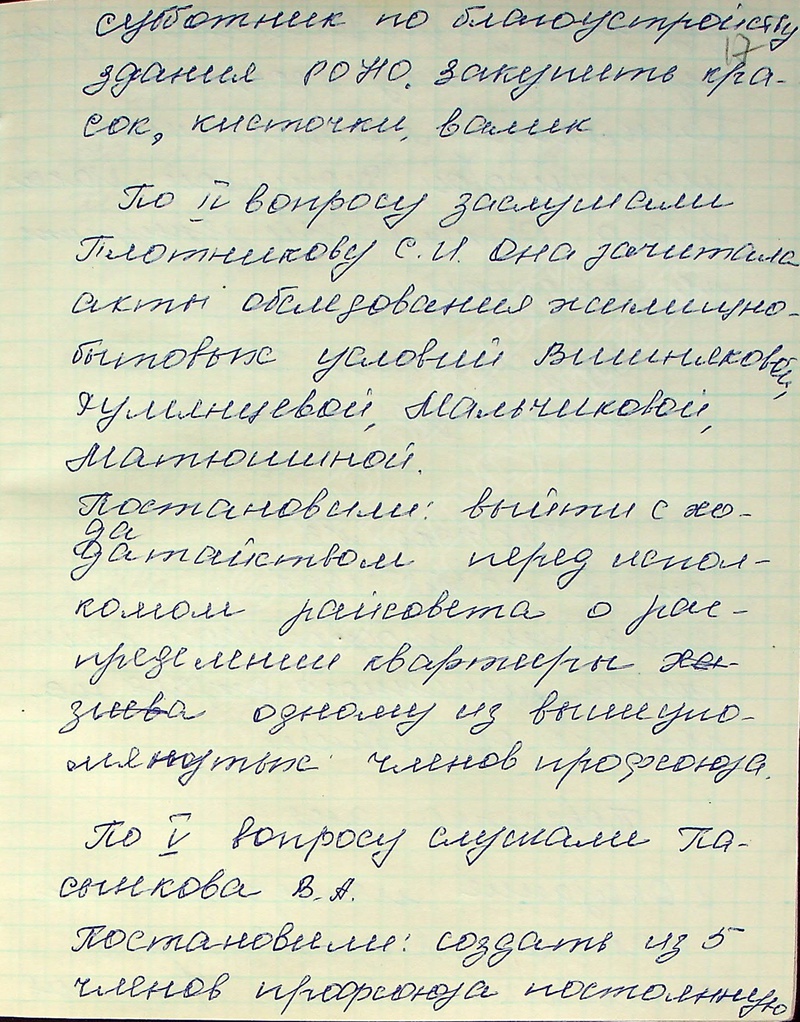 субботник по благоустройству
17
здания РОНО. закупить кра-
сок, кисточки, валик
По IV вопросу заслушали
Плотникову С.И. Она зачитала
акты обследования жилищно-
бытовых условий Вишняковой,
Румянцевой, Мальчиковой,
Матюшиной.
Постановили: выйти с хо-
да
датайством перед испол-
комом райсовета о рас-
пределении квартиры
одному из вышеупо-
мянутых членов профсоюза.
По V вопросу слушали Па-
сынкова В.А.
Постановили: создать из 5
членов профсоюза постоянную